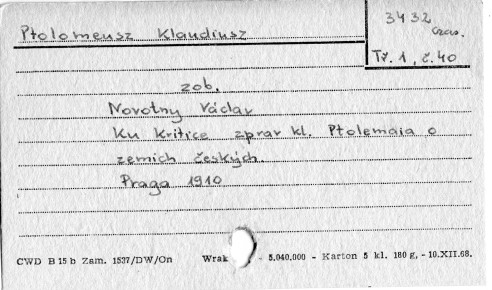 Ptolomeusz Klaudiusz
3432
Czas.
Tř. 1, č. 40
zob.
Novotny Václav
Ku kritice zprav kl. Ptolemaia o
zemich českých.
Praga 1910
CWD B 15 b Zam. 1537/DW/On Wrak - 5.040.000 - Karton 5 kl. 180 g, - 10.XII.68.